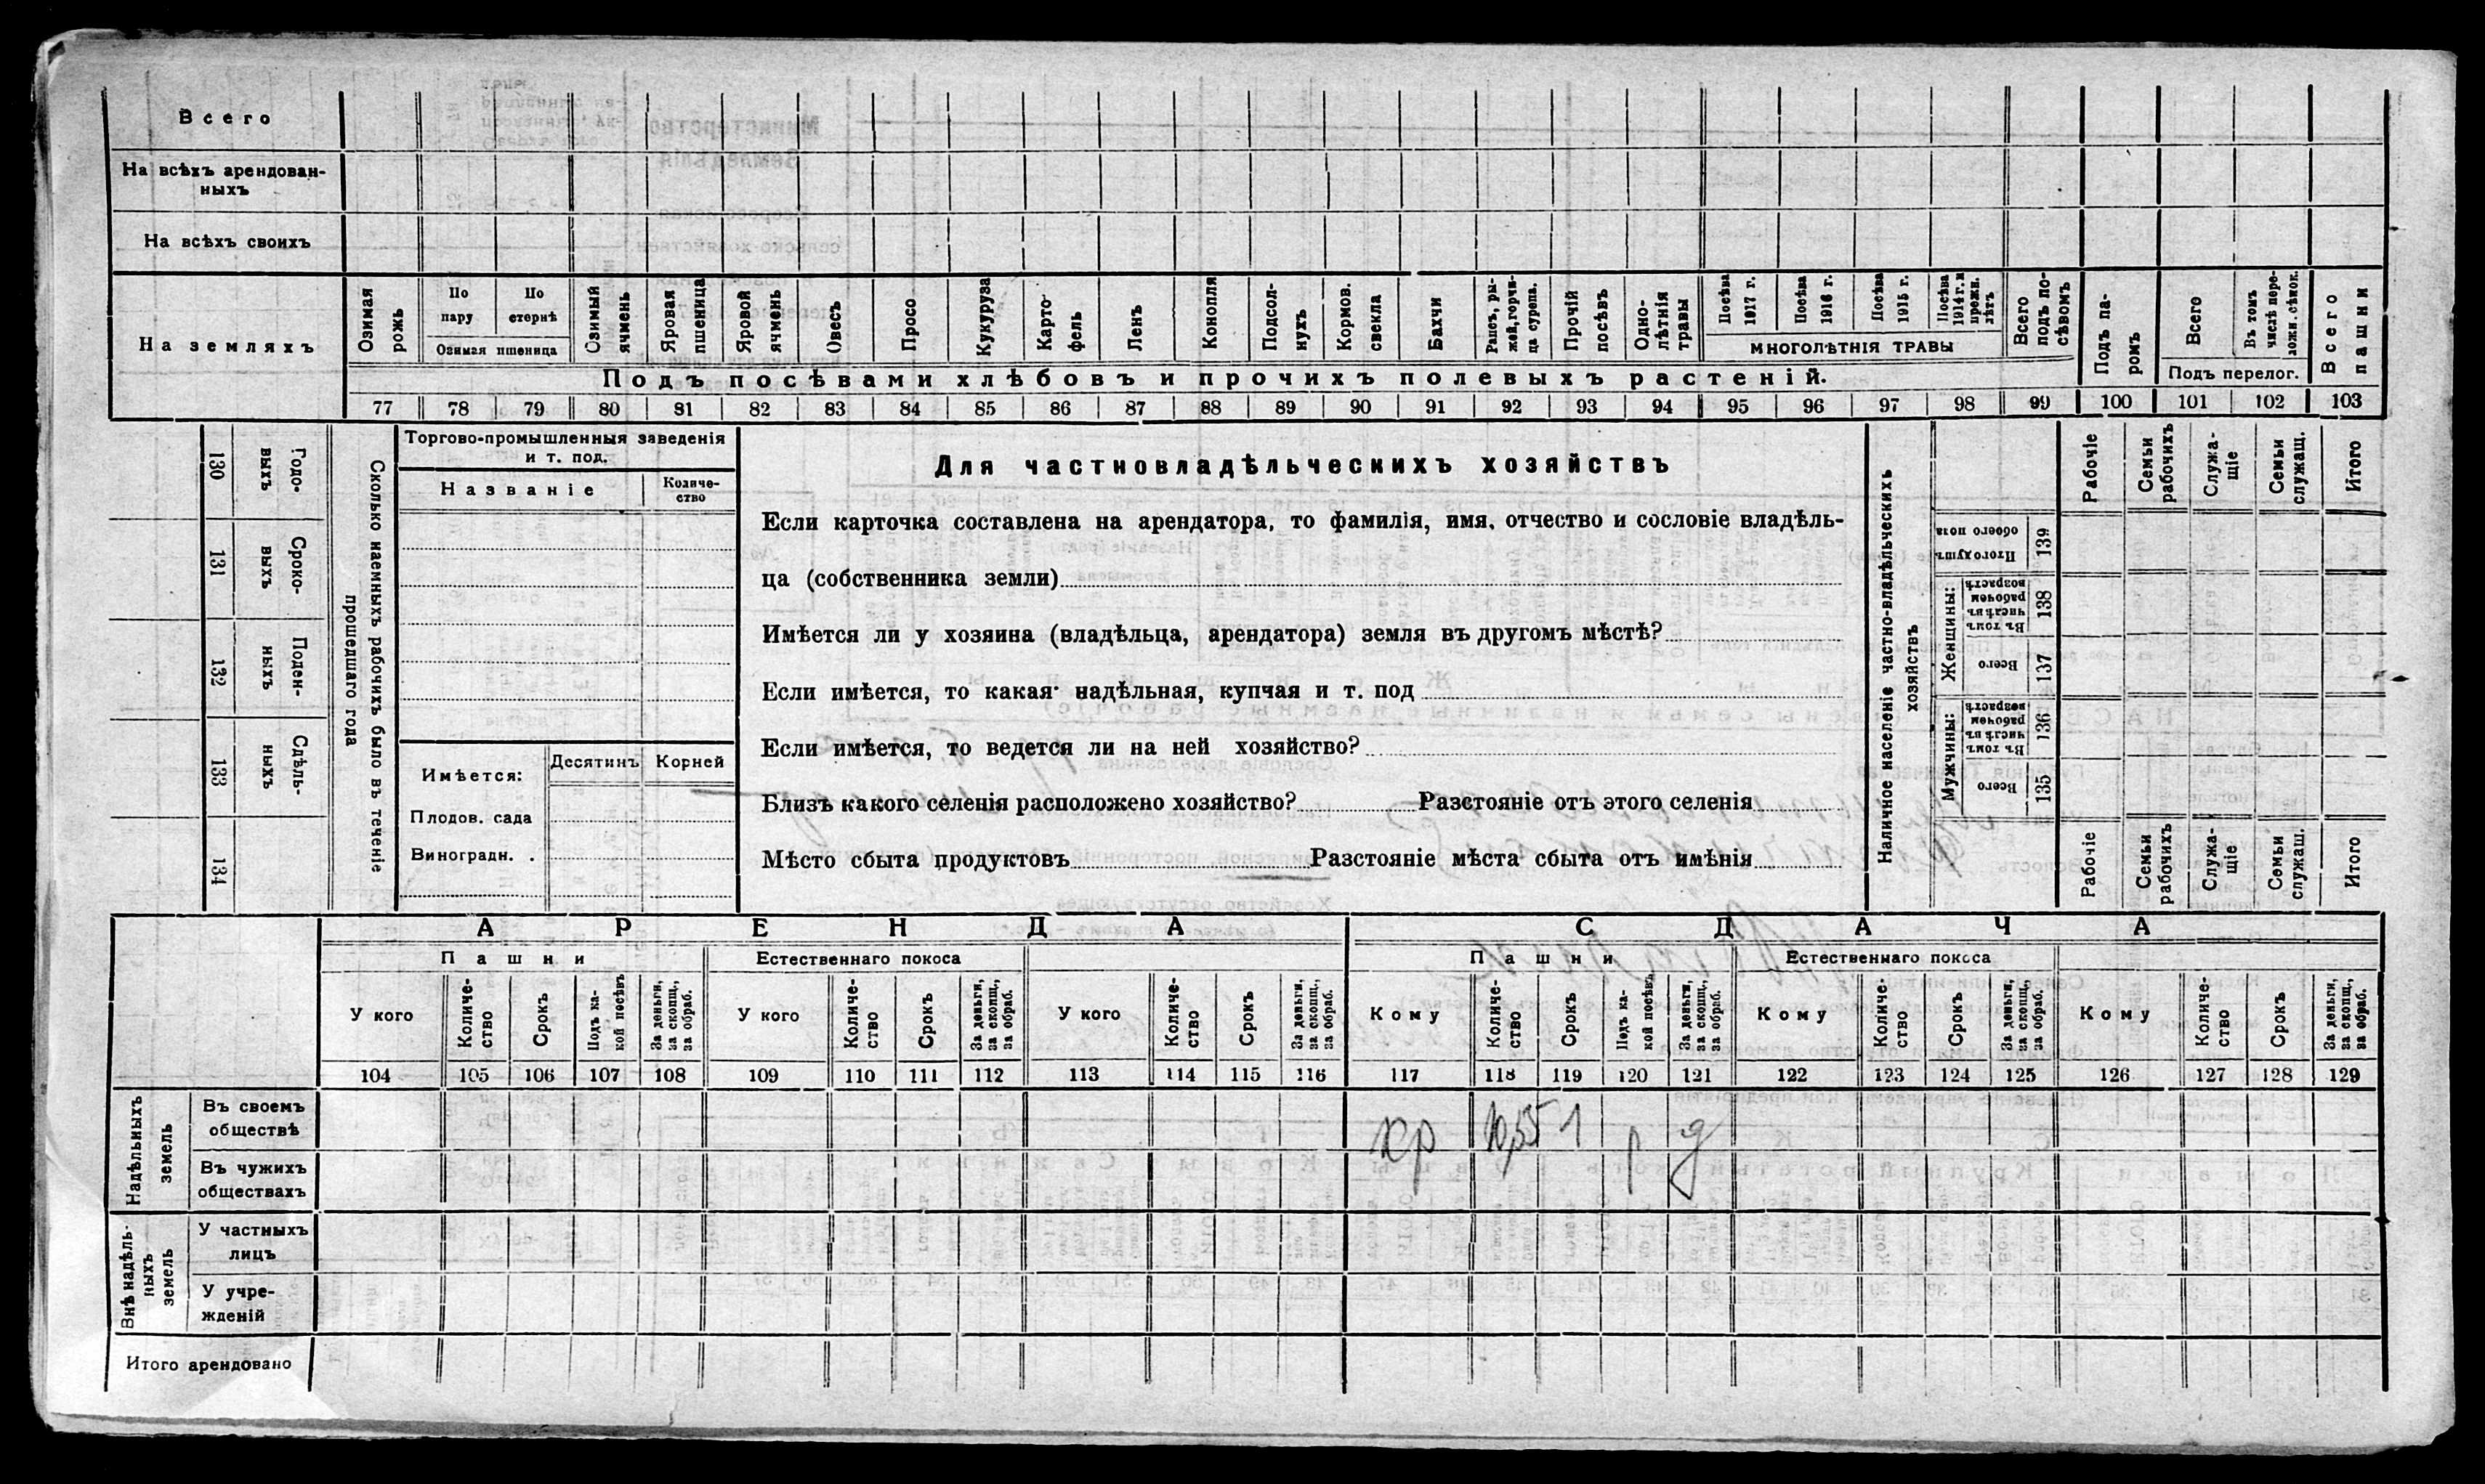 Всего
На всѣхъ арендован-
ныхъ
На всѣхъ своихъ
На земляхъ
Озимая рожь
По пару
По стернѣ
Озимая пшеница
Озимый ячмень
Яровая пшеница
Яровой ячмень
Овесъ
Просо
Кукуруза
Карто-
фель
Ленъ
Конопля
Подсол-
нухъ
Кормов. свекла
Бахчи
Рапсъ, ры-
жей, горчи-
ца сурепа.
Прочій посѣвъ
Одно-
лѣтнія травы
Посѣва 1917 г.
Посѣва 1916 г.
Посѣва 1915 г.
Посѣва 1914 г. и прежн. лѣтъ
МНОГОЛѢТНІЯ ТРАВЫ
Всего подъ по-
сѣвомъ
Подъ па-
ромъ
Всего
Въ томъ числѣ пере-
ложн. сѣнок.
Подъ перелог.
Всего пашни
Подъ посѣвами хлѣбовъ и прочихъ полевыхъ растеній.
77 78 79 80 81 82 83 84 85 86 87 88 89 90 91 92 93 94 95 96 97 98 99 100 101 102 103
Сколько наемныхъ рабочихъ было въ теченіе
прошедшаго года
Годо-
выхъ
130
Сроко-
выхъ
131
Поден-
ныхъ
132
Сдѣль-
ныхъ
133
134
Торгово-промышленныя заведенія
и т. под.
Названіе
Количе-
ство
Имѣется:
Десятинъ
Корней
Плодов. сада
Виноградн. .
Для частновладѣльческихъ хозяйствъ
Если карточка составлена на арендатора, то фамилія, имя, отчество и сословіе владѣль-
ца (собственника земли)
Имѣется ли у хозяина (владѣльца, арендатора) земля въ другомъ мѣстѣ?
Если имѣется, то какая: надѣльная, купчая и т. под
Если имѣется, то ведется ли на ней хозяйство?
Близъ какого селенія расположено хозяйство? Разстояніе отъ этого селенія
Мѣсто сбыта продуктовъ Разстояніе мѣста сбыта отъ имѣнія
Наличное населеніе частно-владѣльческихъ
хозяйствъ
Рабочіе
Семьи рабочихъ
Служа-
щіе
Семьи служащ.
Итого
Итого душъ обоего пола
139
Женщины:
Въ томъ числѣ въ рабочемъ возрастѣ
138
Всего
137
Мужчины:
Въ томъ числѣ въ рабочемъ возрастѣ
136
Всего
135
Рабочіе
Семьи рабочихъ
Служа-
щіе
Семьи служащ.
Итого
АРЕНДА
СДАЧА
Пашни
Естественнаго покоса
Пашни
Естественнаго покоса
У кого
Количе-
ство
Срокъ
Подъ ка-
кой посѣвъ
За деньги, за скопщ., за обраб.
У кого
Количе-
ство
Срокъ
За деньги, за скопщ., за обраб.
У кого
Количе-
ство
Срокъ
За деньги, за скопщ., за обраб.
Кому
Количе-
ство
Срокъ
Подъ ка-
кой посѣвъ
За деньги, за скопщ., за обраб.
Кому
Количе-
ство
Срокъ
За деньги, за скопщ., за обраб.
Кому
Количе-
ство
Срокъ
За деньги, за скопщ., за обраб.
104 105 106 107 108 109 110 111 112 113 114 115 116 117 118 119 120 121 122 123 124 125 126 127 128 129
Надѣльныхъ земель
Въ своемъ
обществѣ
кр 1 р д
Въ чужихъ
обществахъ
Внѣ надѣль-
ныхъ земель
У частныхъ
лицъ
У учре-
жденій
Итого арендовано